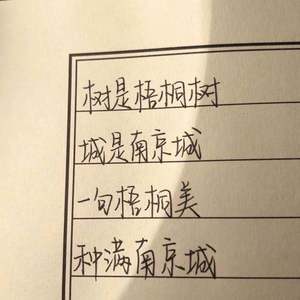 树是梧桐树
城是南京城
一句梧桐美
种满南京城